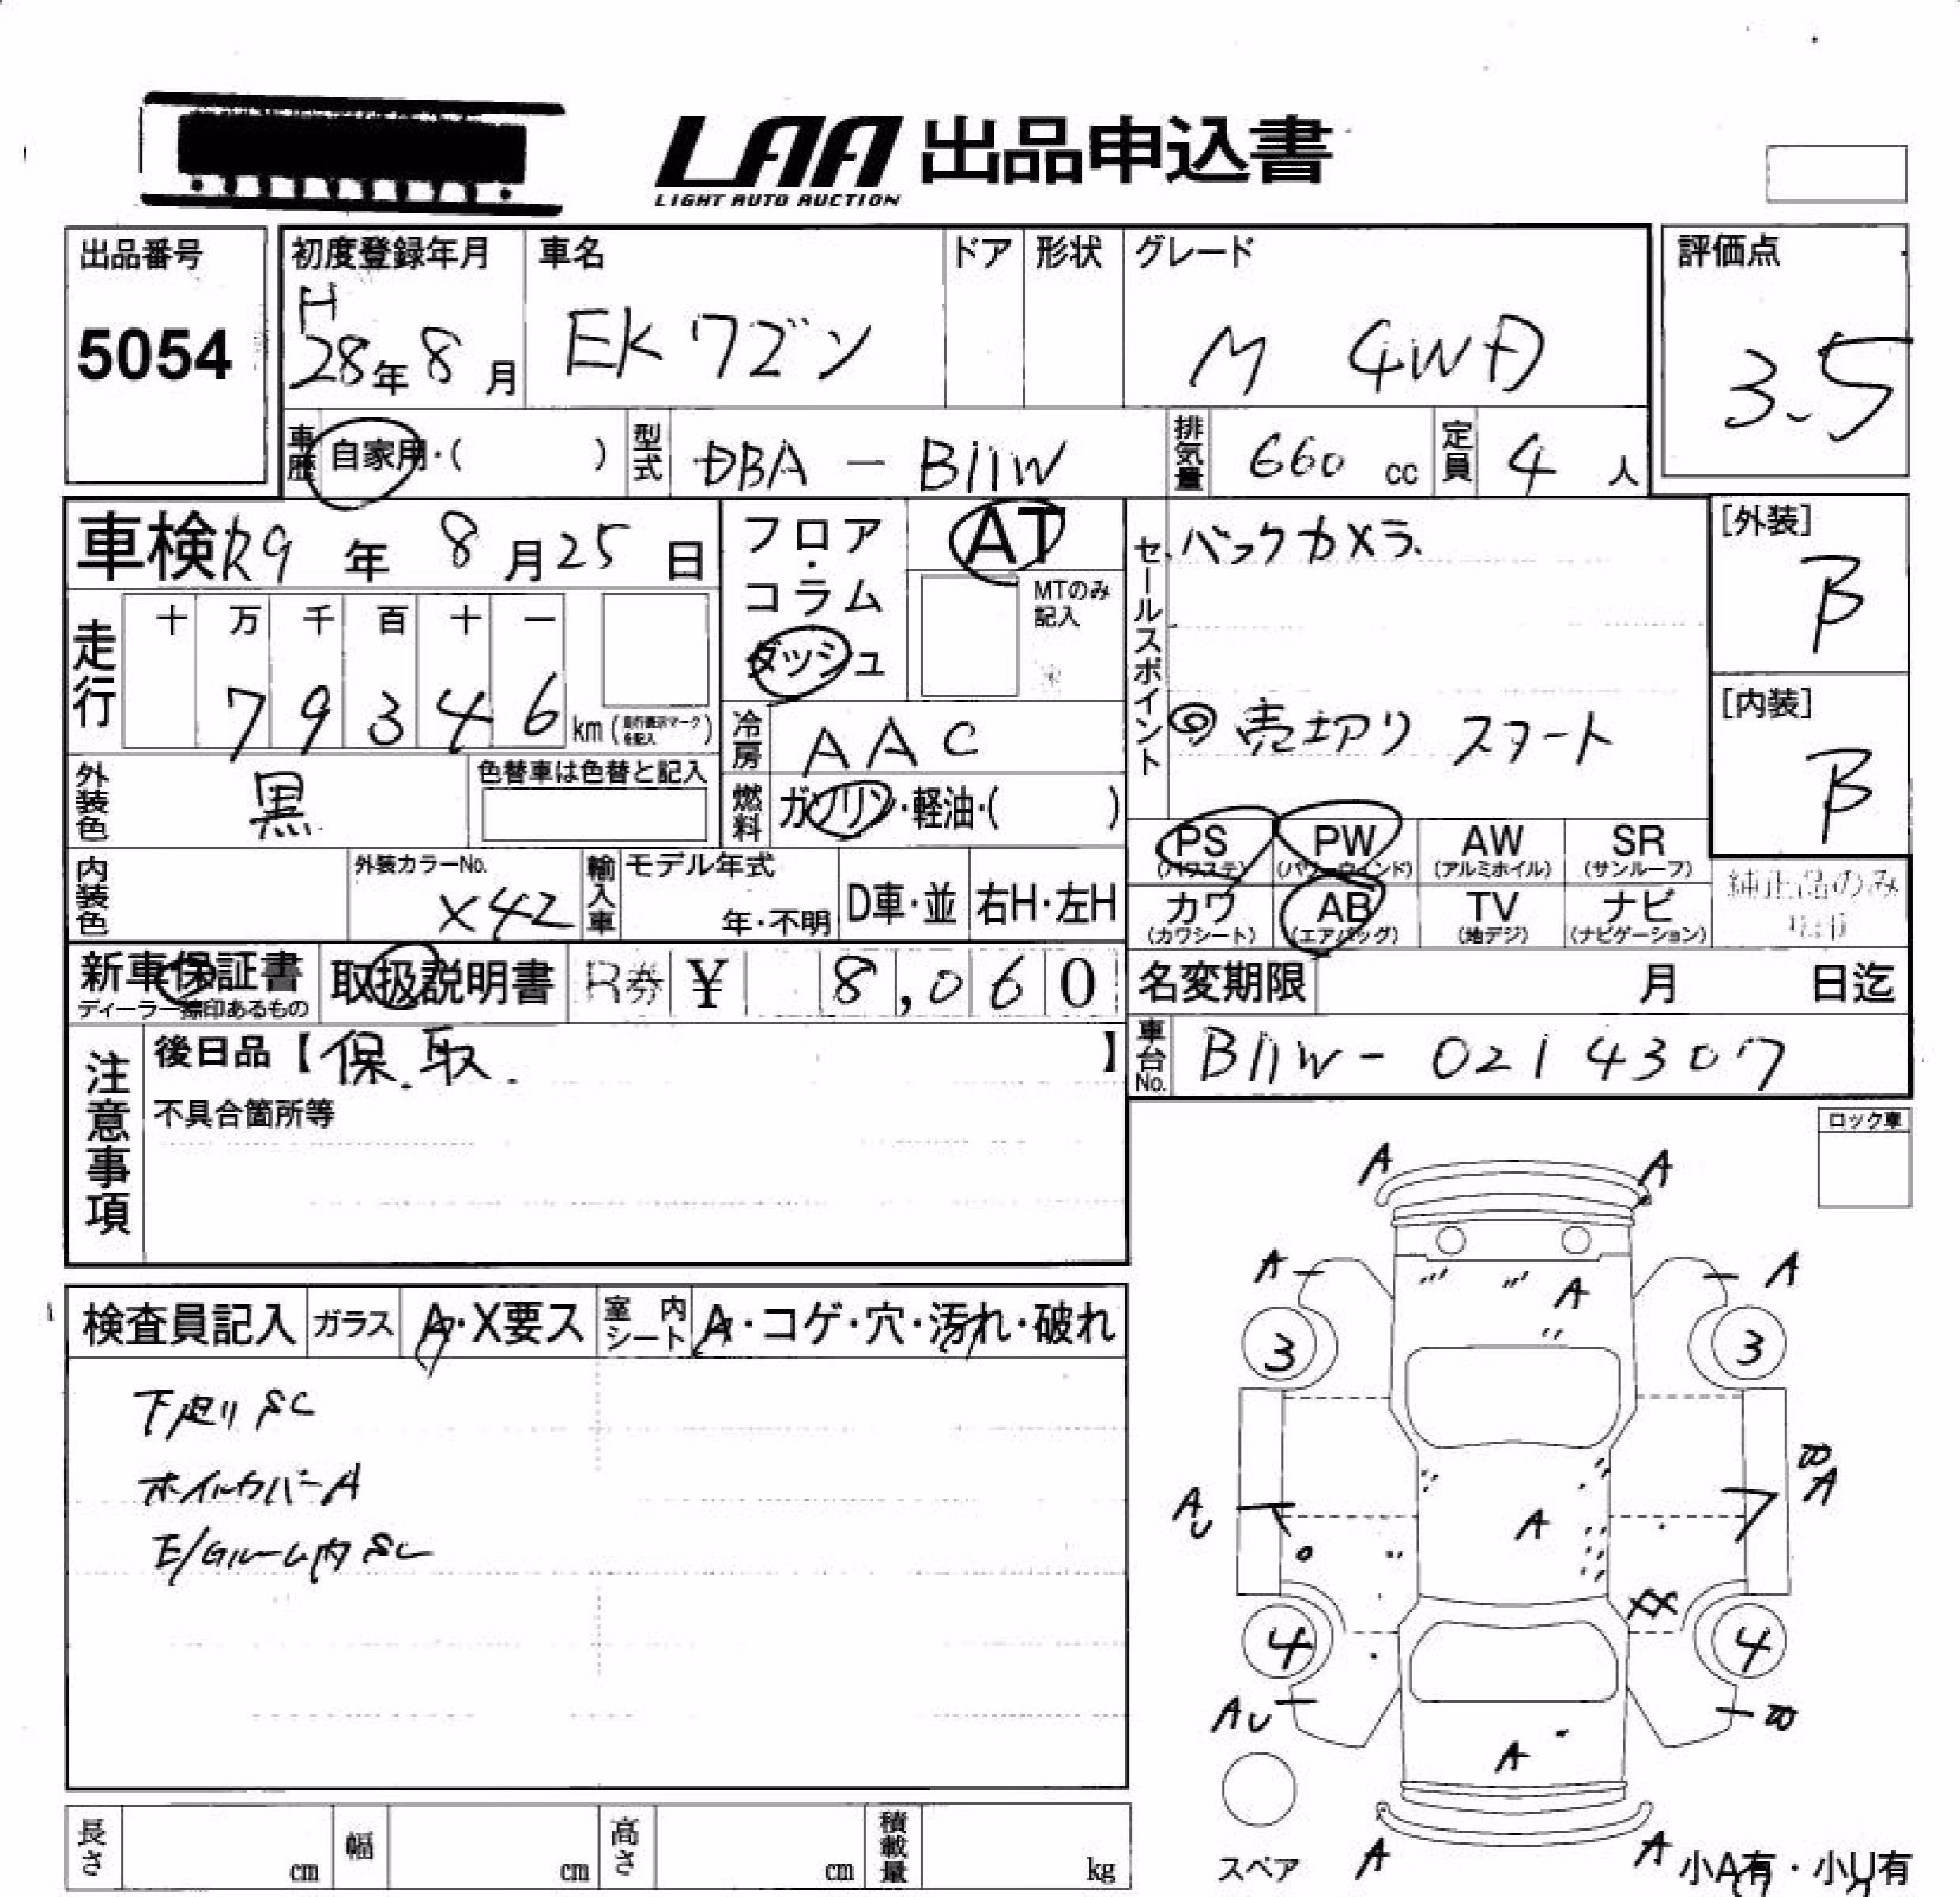 LAA 出品申込書
LIGHT AUTO AUCTION
出品番号
5054
初度登録年月
H
28年 8月
車名
EK ワゴン
ドア
形状
グレード
M 4WD
評価点
3.5
車歴
自家用・( )
型式
DBA - B11W
排気量
660 cc
定員
4 人
車検 R9 年 8 月 25 日
フロア・コラム
ダッシュ
AT
MTのみ記入
セールスポイント
バックカメラ
◎売切り スタート
[外装]
B
[内装]
B
走行
十 万 千 百 十 一
7 9 3 4 6 km (走行表示マークを記入)
冷房
AAC
外装色
黒
色替車は色替と記入
燃料
ガソリン・軽油・( )
PS (パワステ)
PW (パワーウインド)
AW (アルミホイル)
SR (サンルーフ)
カワ (カワシート)
AB (エアバッグ)
TV (地デジ)
ナビ (ナビゲーション)
純正品のみ
内装色
外装カラーNo.
X42
輸入車
モデル年式
年・不明
D車・並
右H・左H
新車保証書
ディーラー捺印あるもの
取扱説明書
R券 ¥ 8,060
名変期限 月 日迄
注意事項
後日品【保.取. 】
不具合箇所等
車台No.
B11W - 0214307
ロック車
検査員記入
ガラス
A・X要ス
室内シート
A・コゲ・穴・汚れ・破れ
下廻り SC
ホイルカバーA
E/Gルーム内 SC
A A
A A
A
3 3
A
A
U
A
XX
4 4
AU
A
スペア
A A
小A有・小U有
長さ cm
幅 cm
高さ cm
積載量 kg